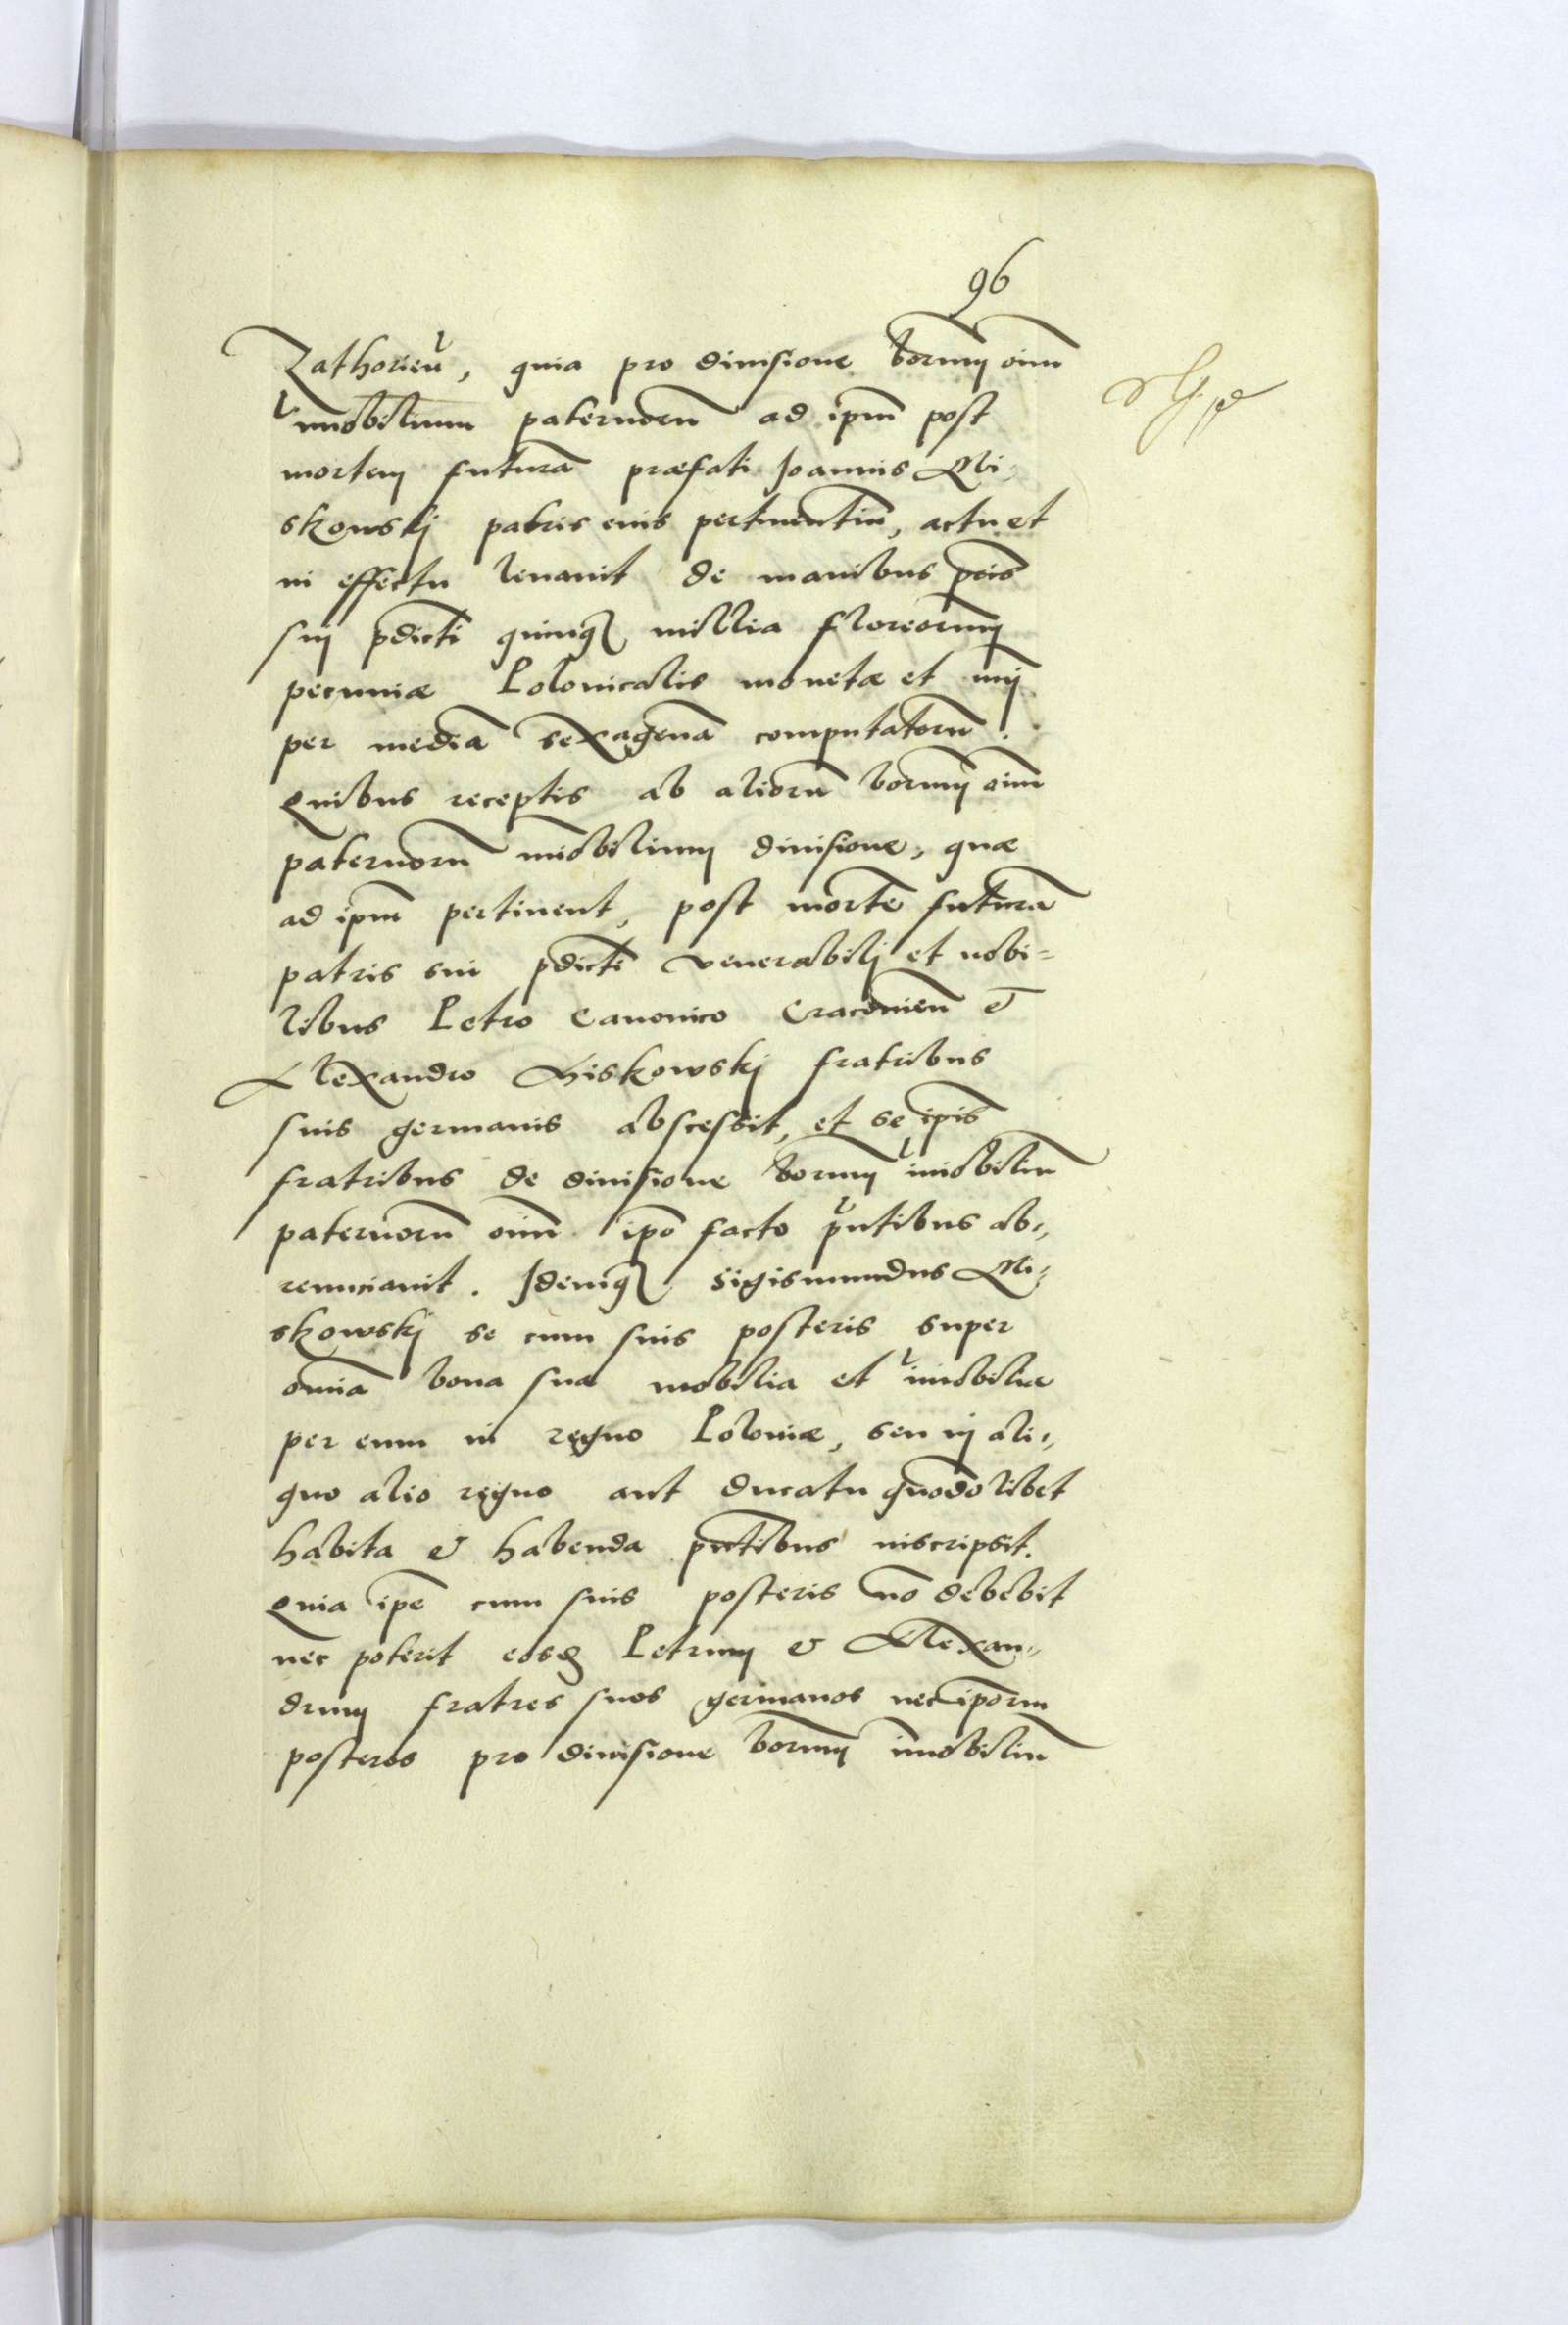 96
Zathorien̄, quia pro diuisione bonorum̄ oīm
īmobilium paternorū ad ip̄m post
mortem futurā præfati Joannis Mi-
skowskj patris eius pertinentiū, actu et
in effectu leuauit de manibus pr̄is
suj p̄dicti quinq3 millia florenorum
pecuniæ Polonicalis monetæ et nrj
per mediā sexagenā computatorū.
Quibus receptis ab aliorū bonorum oīm
paternorū īmobilium diuisione, quæ
ad ip̄m pertinent, post mortē futurā
patris sui p̄dicti venerabilj et nobi-
libus Petro Canonico Cracouien̄ et
Alexandro Miskowskj fratribus
suis germanis abscessit, et se ip̄is
fratribus de diuisione bonorum īmobiliū
paternorū oīm ip̄o facto p̄ntibus ab-
renunciauit. Idemq3 Sigismundus Mi-
skowskj se cum suis posteris super
omīa bona sua mobilia et īmobilia
per eum in regno Poloniæ, seu in ali-
quo alio regno aut ducatu quomodolibet
habita & habenda p̄ntibus inscripsit.
Quia ip̄e cum suis posteris nō debebit
nec poterit eosd3 Petrum & Alexan-
drum fratres suos germanos nec ip̄orum
posteros pro diuisione bonorum īmobiliū